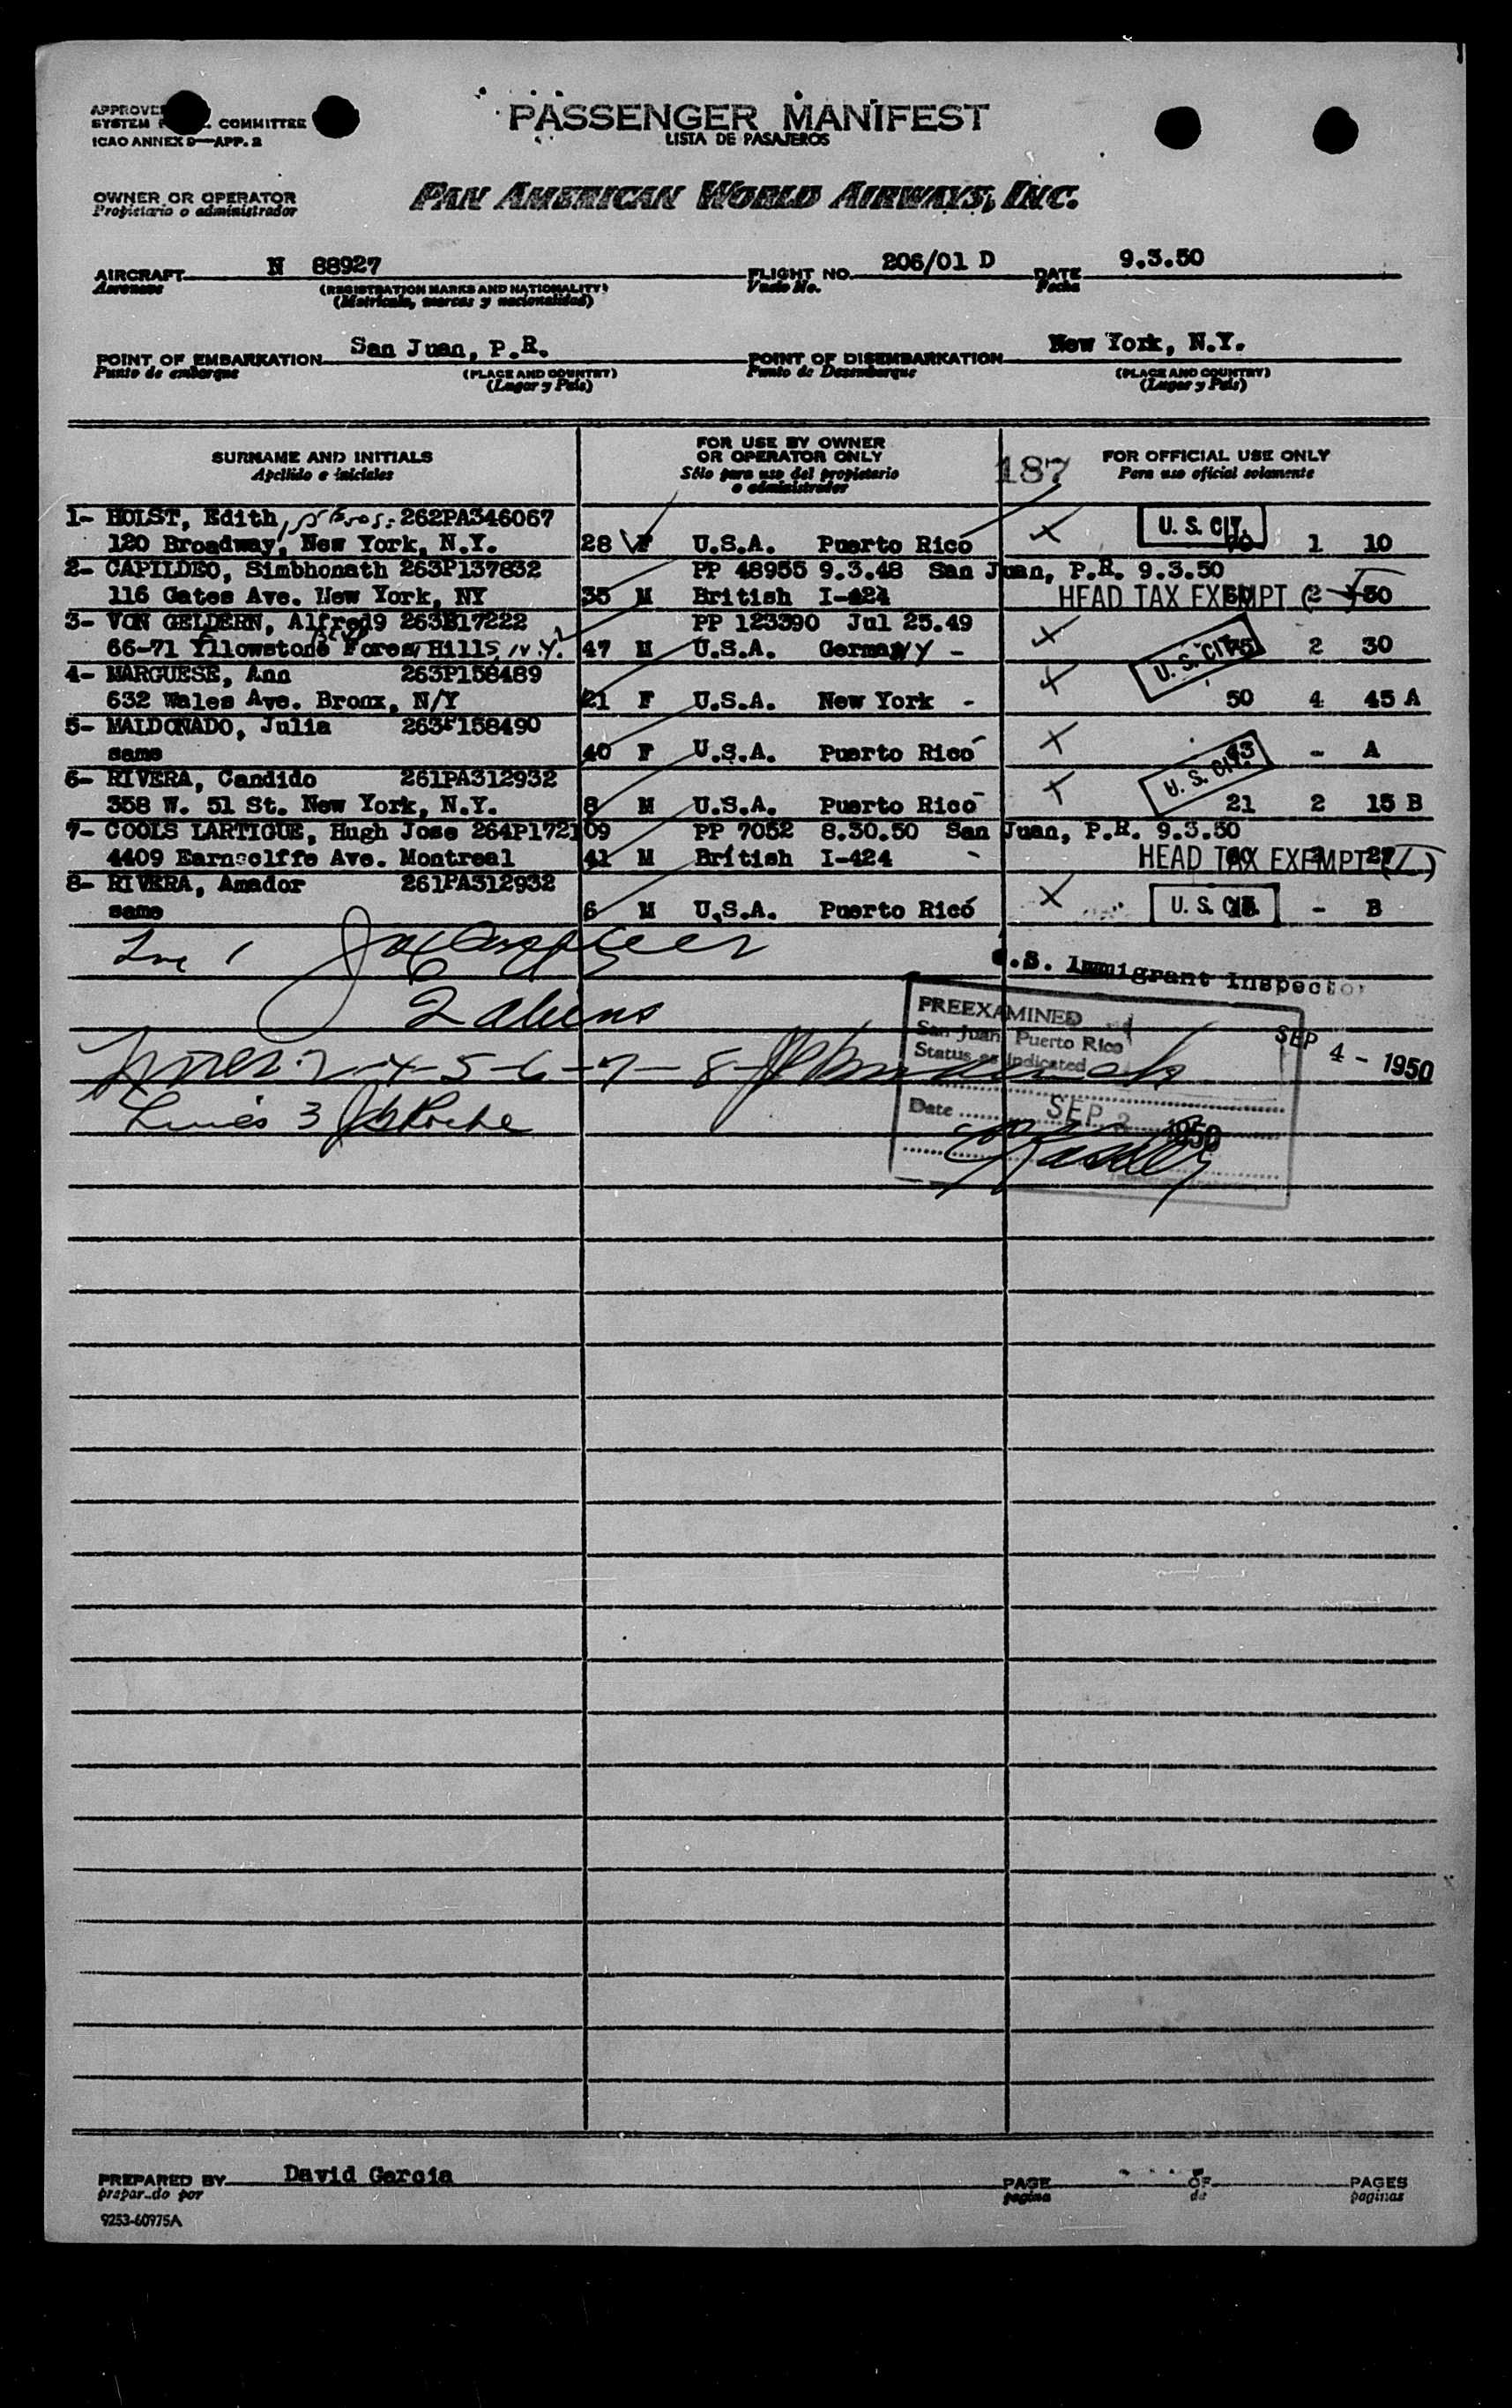 APPROVED
SYSTEM COMMITTEE
ICAO ANNEX 9—APP. 2
PASSENGER MANIFEST
LISTA DE PASAJEROS
OWNER OR OPERATOR
Propietario o administrador
PAN AMERICAN WORLD AIRWAYS, INC.
AIRCRAFT N 88927 FLIGHT NO. 206/01 D DATE 9.3.50
Aeronave (REGISTRATION MARKS AND NATIONALITY) Vuelo No. Fecha
(Matricula, marcas y nacionalidad)
POINT OF EMBARKATION San Juan, P.R. POINT OF DISEMBARKATION New York, N.Y.
Punto de embarque (PLACE AND COUNTRY) Punto de Desembarque (PLACE AND COUNTRY)
(Lugar y País) (Lugar y País)
SURNAME AND INITIALS FOR USE BY OWNER OR OPERATOR ONLY 187 FOR OFFICIAL USE ONLY
Apellido e iniciales Sólo para uso del propietario o administrador Para uso oficial solamente
1- HOLST, Edith, 262PA346067
120 Broadway, New York, N.Y. 28 F U.S.A. Puerto Rico U. S. CIT. 1 10
2- CAPILDEO, Simbhonath 263P137832 PP 48955 9.3.48 San Juan, P.R. 9.3.50
116 Gates Ave. New York, NY 35 M British I-424 HEAD TAX EXEMPT 2 50
3- VON GELDERN, Alfred9 263E17222 PP 123390 Jul 25.49
66-71 Yllowstone Forest Hills, N.Y. 47 M U.S.A. Germany - U. S. CIT. 2 30
4- MARGUESE, Ann 263P158489
632 Wales Ave. Bronx, N/Y 21 F U.S.A. New York - 50 4 45 A
5- MALDONADO, Julia 263P158490
same 40 F U.S.A. Puerto Rico - 43 - A
6- RIVERA, Candido 261PA312932 U. S. CIT.
358 W. 51 St. New York, N.Y. 8 M U.S.A. Puerto Rico - 21 2 15 B
7- COOLS LARTIGUE, Hugh Jose 264P172109 PP 7052 8.30.50 San Juan, P.R. 9.3.50
4409 Earnscliffe Ave. Montreal 41 M British I-424 - HEAD TAX EXEMPT 27
8- RIVERA, Amador 261PA312932
same 6 M U.S.A. Puerto Rico U. S. CIT. - B
1
U.S. Immigrant Inspector
2 aliens
PREEXAMINED
San Juan, Puerto Rico
Status as indicated
SEP 4 - 1950
2-4-5-6-7-8
Date SEP 3 1950
Lines 3
PREPARED BY David Garcia PAGE OF PAGES
preparado por pagina de paginas
9253-60975A